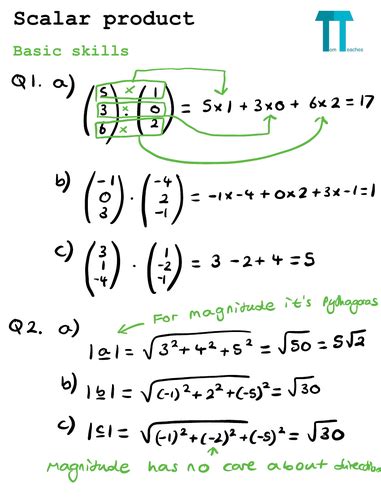 Scalar product
TT
Tom Teaches
Basic skills
Q1. a) (5 3 6) × × × (1 0 2) = 5×1 + 3×0 + 6×2 = 17
b) (-1 0 3) · (-4 2 -1) = -1×-4 + 0×2 + 3×-1 = 1
c) (3 1 -4) · (1 -2 -1) = 3 -2 + 4 = 5
For magnitude it's Pythagoras
Q2. a) |a| = √3² + 4² + 5² = √50 = 5√2
b) |b| = √(-1)² + 2² + (-5)² = √30
c) |c| = √(-1)² + (-2)² + (-5)² = √30
Magnitude has no care about direction